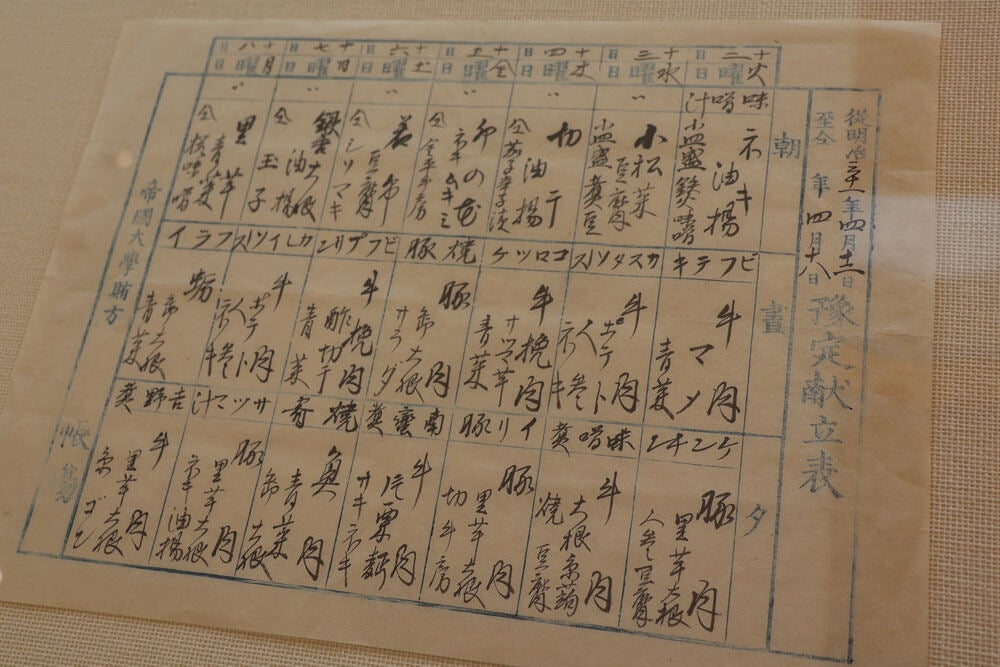 從明治三十一年四月十二日
至仝 年四月十八日
豫定献立表
朝
晝
夕
十二日 火曜日
味噌汁
ネキ
油揚
ビフテキ
牛肉
マメ
青菜
ケンチン
豚肉
里芋大根
人参豆腐
十三日 水曜日
〃
小松菜
豆腐
小皿盛煮豆
牛肉
ポテト
人参
ネキ
味噌煮
牛肉
大根
焼豆腐
十四日 木曜日
〃
切干
油揚
コロツケ
牛挽肉
サツマ芋
青菜
イリ豚
豚肉
里芋大根
切牛房
十五日 金曜日
〃
卯の花
ネキ
焼豚
豚肉
大根
サラダ
南蠻煮
牛肉
ネキ
十六日 土曜日
〃
若布
豆腐
仝シソマキ
ビフプリン
牛挽肉
酢
切干
青菜
焼肴
魚肉
青菜
大根
十七日 日曜日
〃
大根
油揚
仝玉子
牛肉
ポテト
人参
ネキ
サツマ汁
豚肉
里芋大根
ネキ油揚
十八日 月曜日
〃
里芋
青菜
仝桜味噌
フライ
大根
青菜
吉野煮
牛肉
里芋大根
帝國大學賄方
帳場